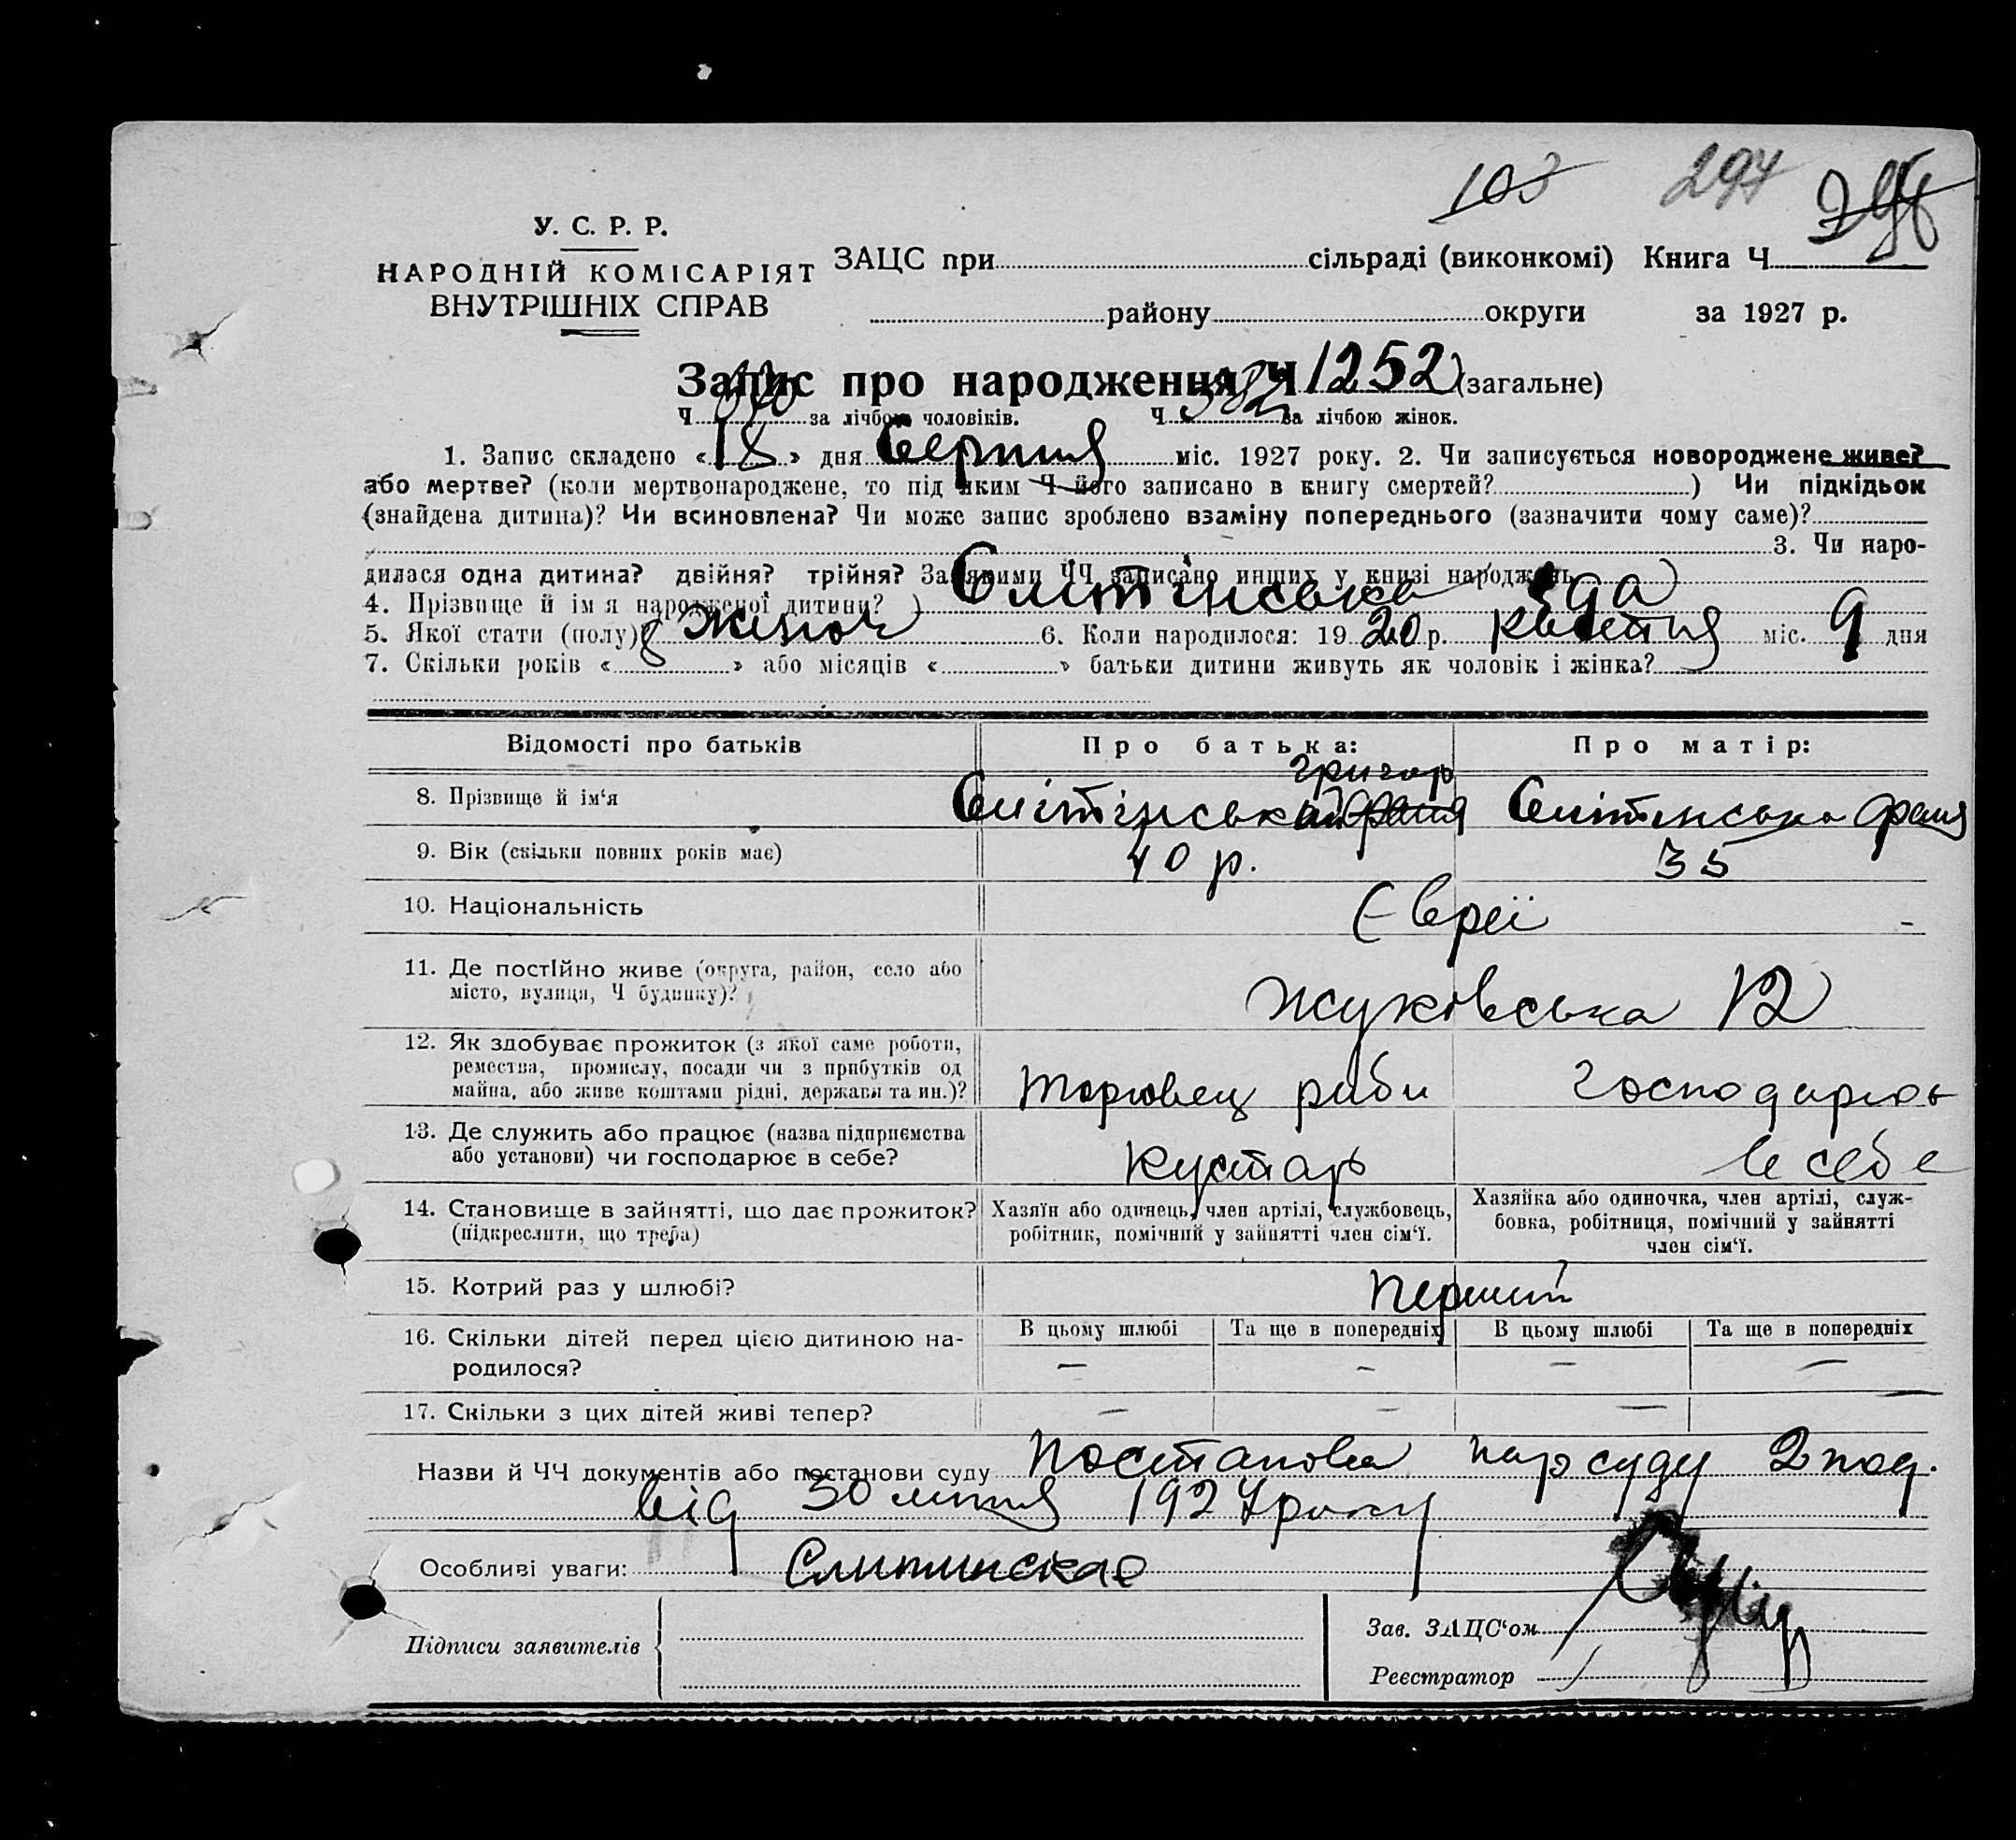 103 294
У. С. Р. Р.
НАРОДНІЙ КОМІСАРІЯТ
ВНУТРІШНІХ СПРАВ
ЗАЦС при сільраді (виконкомі) Книга Ч
району округи за 1927 р.
Запис про народження Ч 1252 (загальне)
Ч за лічбою чоловіків. Ч 582 за лічбою жінок.
1. Запис складено « 18 » дня Серпня міс. 1927 року. 2. Чи записується новороджене живе?
або мертве? (коли мертвонароджене, то під яким Ч його записано в книгу смертей? ) Чи підкідьок
(знайдена дитина)? Чи всиновлена? Чи може запис зроблено взаміну попереднього (зазначити чому саме)?
3. Чи наро-
дилася одна дитина? двійня? трійня? За якими ЧЧ записано инших у книзі народжень
4. Прізвище й ім я народженої дитини? ) Слітінська Еда
5. Якої стати (полу) Жіноч 6. Коли народилося: 19 20 р. квітня міс. 9 дня
7. Скільки років « » або місяців « » батьки дитини живуть як чоловік і жінка?
Відомості про батьків Про батька: Про матір:
Григор
8. Прізвище й ім‘я Слітінський Слітінська Фаня
9. Вік (скільки повних років має) 40 р. 35
10. Національність Євреї -
11. Де постійно живе (округа, район, село або
місто, вулиця, Ч будинку)? Жуковська 12
12. Як здобуває прожиток (з якої саме роботи,
ремества, промислу, посади чи з прибутків од
майна, або живе коштами рідні, держави та ин.)? Торговец риби Господарює
13. Де служить або працює (назва підприємства
або установи) чи господарює в себе? Кустарь в себе
14. Становище в зайнятті, що дає прожиток? (підкреслити, що треба)
Хазяїн або одинець, член артілі, службовець,
робітник, помічний у зайнятті член сім‘ї.
Хазяйка або одиночка, член артілі, служ-
бовка, робітниця, помічний у зайнятті
член сім‘ї.
15. Котрий раз у шлюбі? Перший
16. Скільки дітей перед цією дитиною на-
родилося?
В цьому шлюбі Та ще в попередніх В цьому шлюбі Та ще в попередніх
— – — —
17. Скільки з цих дітей живі тепер? — – — —
Назви й ЧЧ документів або постанови суду Постанова нарсуду 2
від 30 липня 1927 року
Особливі уваги: Слитинская
Підписи заявителів
Зав. ЗАЦС‘ом
Реєстратор